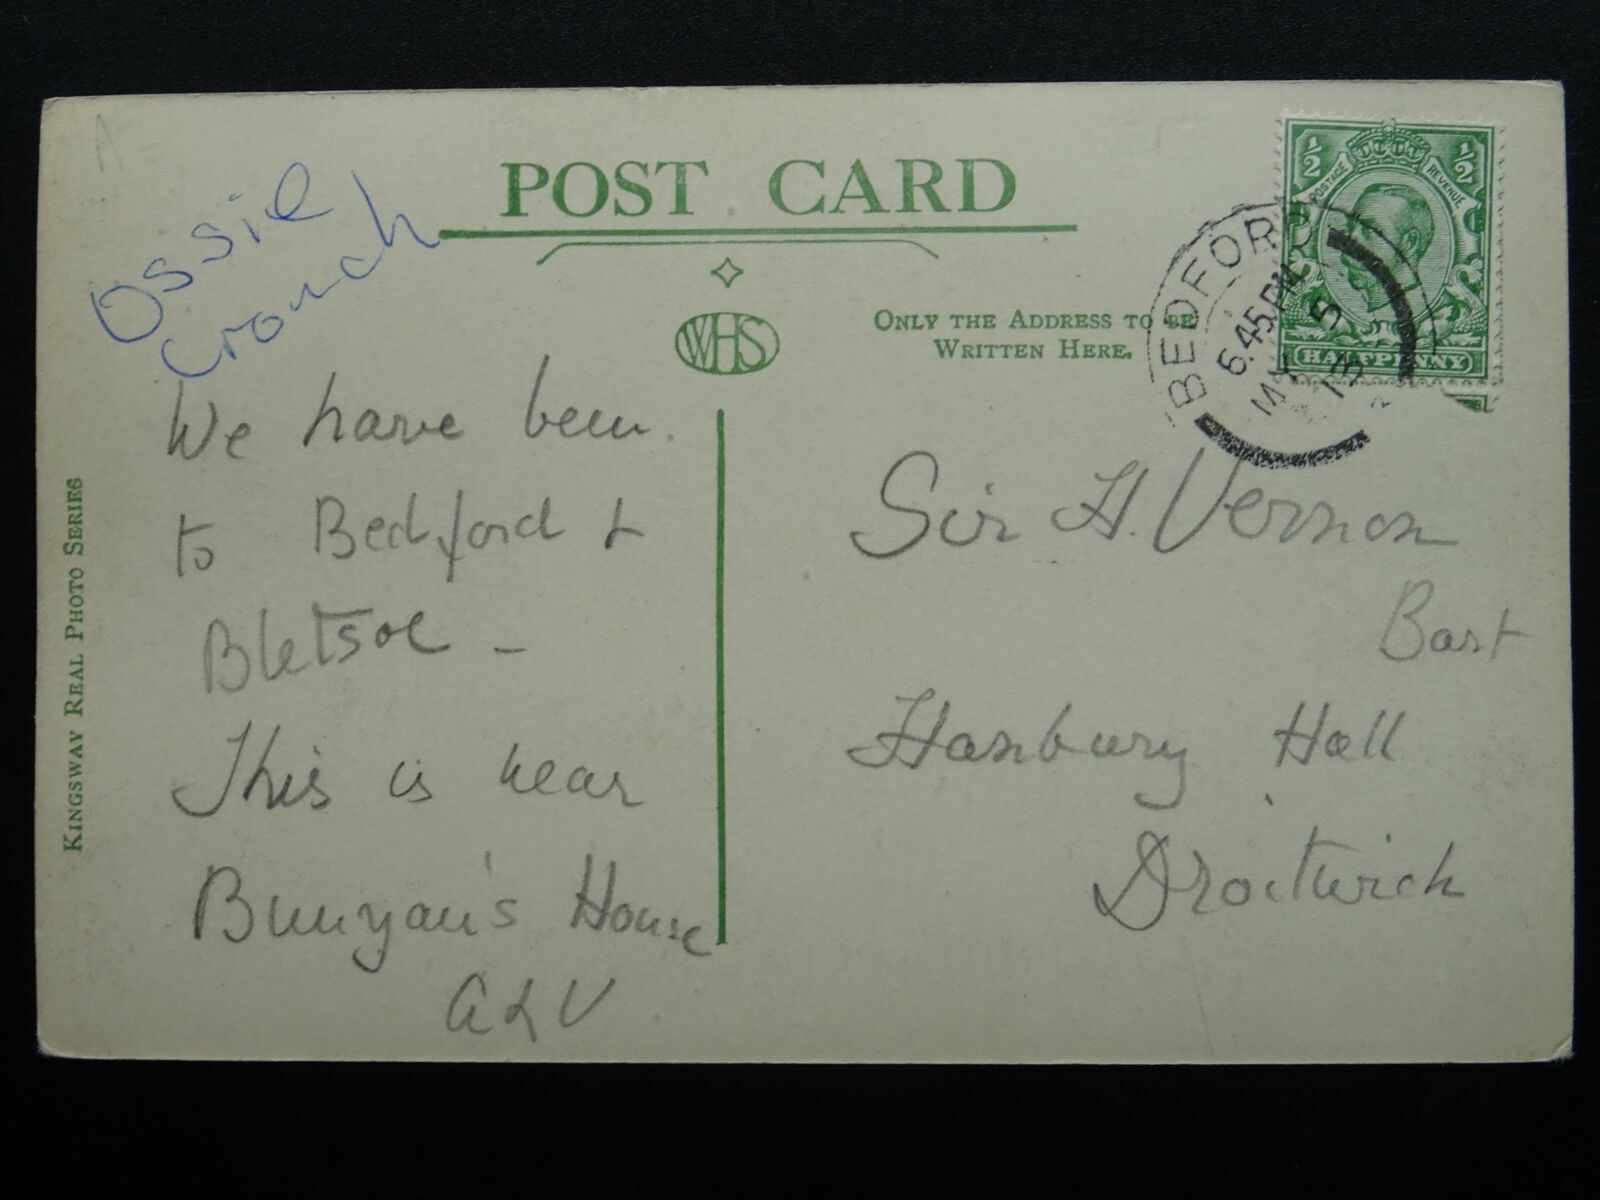 POST CARD
Ossie
Crouch
WHS
ONLY THE ADDRESS TO BE
WRITTEN HERE.
½ ½
POSTAGE REVENUE
HALFPENNY
BEDFORD
6.45 PM
MY 5
13
KINGSWAY REAL PHOTO SERIES
We have been
to Bedford &
Bletsoe -
This is near
Bunyan's House
ALV
Sir H. Vernon
Bart
Hanbury Hall
Droitwich